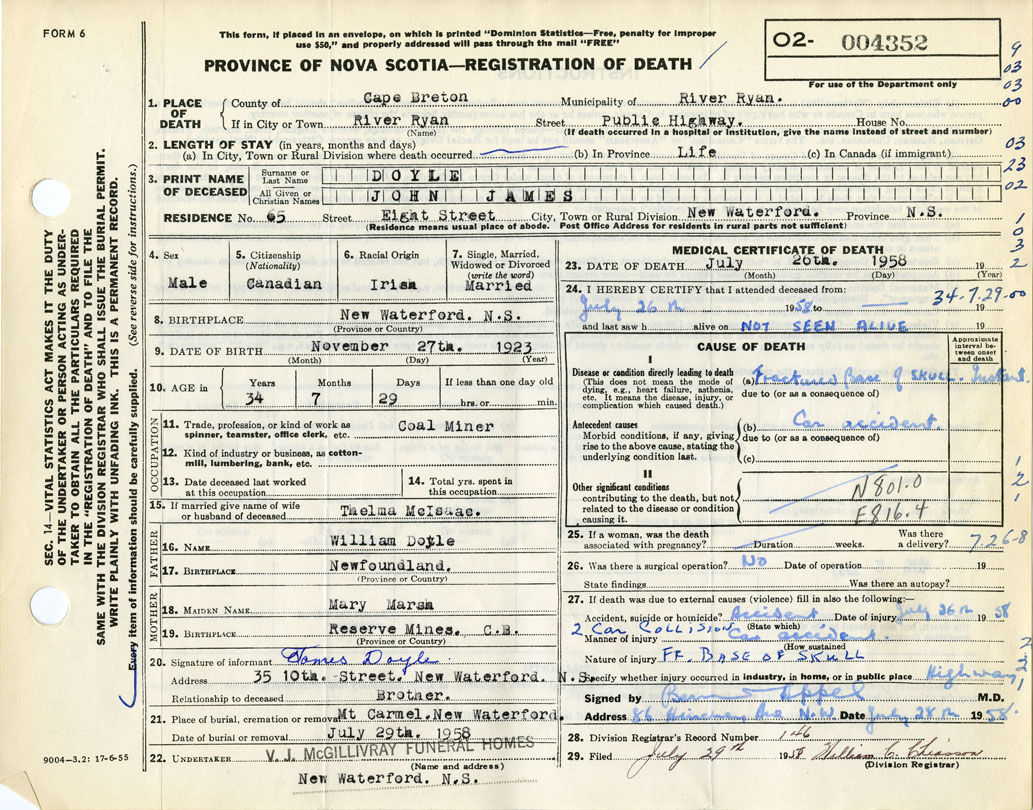 FORM 6
This form, if placed in an envelope, on which is printed "Dominion Statistics—Free, penalty for improper
use $50," and properly addressed will pass through the mail "FREE"
PROVINCE OF NOVA SCOTIA—REGISTRATION OF DEATH
O2- 004352
For use of the Department only
9
03
03
00
03
23
02
1
0
3
2
SEC. 14—VITAL STATISTICS ACT MAKES IT THE DUTY
OF THE UNDERTAKER OR PERSON ACTING AS UNDER-
TAKER TO OBTAIN ALL THE PARTICULARS REQUIRED
IN THE "REGISTRATION OF DEATH" AND TO FILE THE
SAME WITH THE DIVISION REGISTRAR WHO SHALL ISSUE THE BURIAL PERMIT.
WRITE PLAINLY WITH UNFADING INK. THIS IS A PERMANENT RECORD.
Every item of information should be carefully supplied. (See reverse side for instructions.)
1. PLACE OF DEATH
County of Cape Breton Municipality of River Ryan.
If in City or Town River Ryan Street Public Highway. House No.
(Name) (If death occurred in a hospital or institution, give the name instead of street and number)
2. LENGTH OF STAY (in years, months and days)
(a) In City, Town or Rural Division where death occurred (b) In Province Life (c) In Canada (if immigrant)
3. PRINT NAME OF DECEASED
Surname or Last Name DOYLE
All Given or Christian Names JOHN JAMES
RESIDENCE No. 65 Street Eight Street City, Town or Rural Division New Waterford. Province N.S.
(Residence means usual place of abode. Post Office Address for residents in rural parts not sufficient)
4. Sex
Male
5. Citizenship (Nationality)
Canadian
6. Racial Origin
Irish
7. Single, Married, Widowed or Divorced (write the word)
Married
8. BIRTHPLACE New Waterford. N.S.
(Province or Country)
9. DATE OF BIRTH November 27th. 1923
(Month) (Day) (Year)
10. AGE in Years Months Days If less than one day old
34 7 29 hrs. or min.
OCCUPATION
11. Trade, profession, or kind of work as spinner, teamster, office clerk, etc. Coal Miner
12. Kind of industry or business, as cotton-mill, lumbering, bank, etc.
13. Date deceased last worked at this occupation
14. Total yrs. spent in this occupation
15. If married give name of wife or husband of deceased Thelma McIsaac.
FATHER
16. NAME William Doyle
17. BIRTHPLACE Newfoundland.
(Province or Country)
MOTHER
18. MAIDEN NAME Mary Marsh
19. BIRTHPLACE Reserve Mines. C.B.
(Province or Country)
20. Signature of informant James Doyle.
Address 35 10th. Street. New Waterford. N.S.
Relationship to deceased Brother.
21. Place of burial, cremation or removal Mt Carmel. New Waterford.
Date of burial or removal July 29th. 1958
22. UNDERTAKER V. J. McGILLIVRAY FUNERAL HOMES
(Name and address)
New Waterford. N.S.
9004—3.2: 17-6-55
MEDICAL CERTIFICATE OF DEATH
23. DATE OF DEATH July 26th. 1958 19
(Month) (Day) (Year)
24. I HEREBY CERTIFY that I attended deceased from: 34-7-29-00
July 26th 1958 to 19
and last saw h alive on NOT SEEN ALIVE 19
CAUSE OF DEATH
Approximate interval between onset and death
I
Disease or condition directly leading to death
(This does not mean the mode of dying, e.g., heart failure, asthenia, etc. It means the disease, injury, or complication which caused death.)
(a) Fractured Base of SKULL. Instant
due to (or as a consequence of)
Antecedent causes
Morbid conditions, if any, giving rise to the above cause, stating the underlying condition last.
(b) Car accident.
due to (or as a consequence of)
(c)
II
Other significant conditions
contributing to the death, but not related to the disease or condition causing it.
N801.0
E816.4
1
2
1
25. If a woman, was the death associated with pregnancy? Duration weeks. Was there a delivery? 7-26-8
26. Was there a surgical operation? No Date of operation 19
State findings Was there an autopsy?
27. If death was due to external causes (violence) fill in also the following:—
Accident, suicide or homicide? Accident Date of injury July 26th 1958
(State which)
2 Car COLLISION
Manner of injury Car accident.
(How sustained
Nature of injury FR. BASE OF SKULL
Specify whether injury occurred in industry, in home, or in public place Highway
2
3
1
Signed by Appel M.D.
Address 86 Ave N.W. Date July 28th 1958.
28. Division Registrar's Record Number 146
29. Filed July 29th 1958 William C. Chiasson
(Division Registrar)